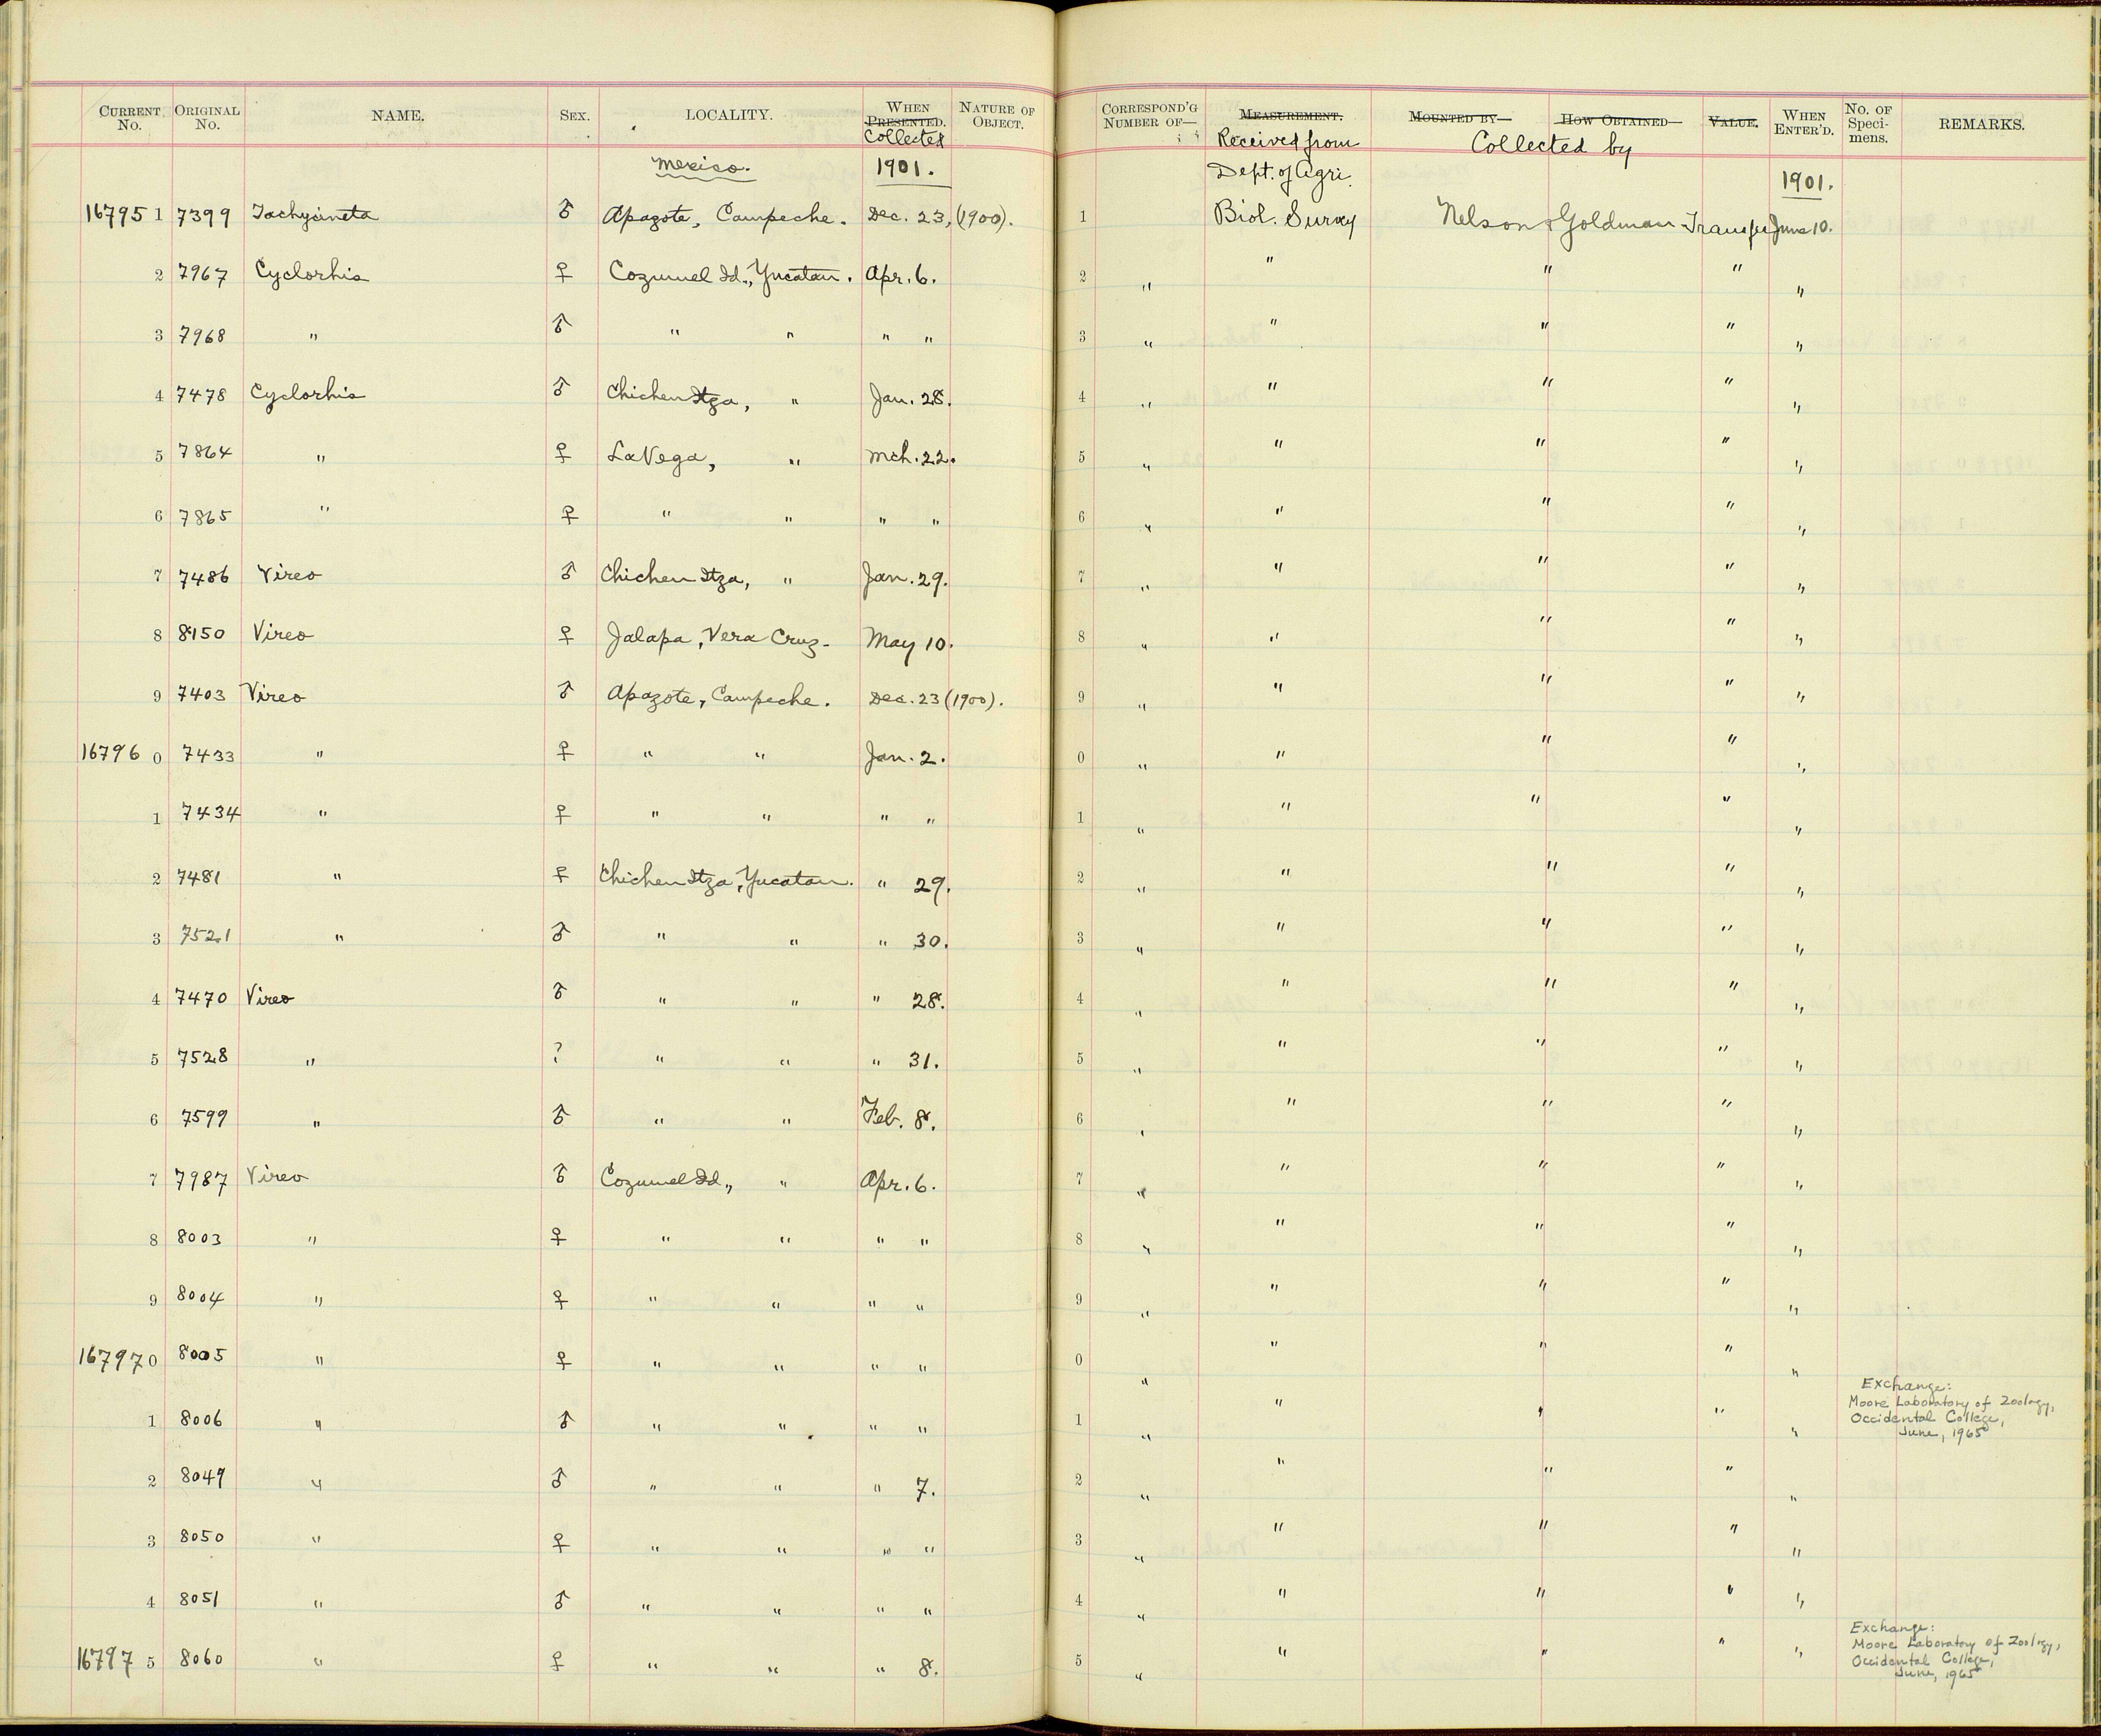 CURRENT No. ORIGINAL No. NAME. SEX. LOCALITY. WHEN PRESENTED. Collected NATURE OF OBJECT. CORRESPOND'G NUMBER OF— MEASUREMENT. Received from MOUNTED BY— HOW OBTAINED— Collected by VALUE. WHEN ENTER'D. No. OF Speci- mens. REMARKS.
Mexico. 1901. Dept. of Agri. 1901.
16795 1 7399 Tachycineta ♂ Apazote, Campeche. Dec. 23, (1900). 1 Biol. Survey Nelson & Goldman Transfer June 10.
2 7967 Cyclorhis ♀ Cozumel Id., Yucatan. Apr. 6. 2 " " " " "
3 7968 " ♂ " " " " 3 " " " " "
4 7478 Cyclorhis ♂ Chichen Itza, " Jan. 28. 4 " " " " "
5 7864 " ♀ La Vega, " Mch. 22. 5 " " " " "
6 7865 " ♀ " " " " 6 " " " " "
7 7486 Vireo ♂ Chichen Itza, " Jan. 29. 7 " " " " "
8 8150 Vireo ♀ Jalapa, Vera Cruz. May 10. 8 " " " " "
9 7403 Vireo ♂ Apazote, Campeche. Dec. 23 (1900). 9 " " " " "
16796 0 7433 " ♀ " " Jan. 2. 0 " " " " "
1 7434 " ♀ " " " " 1 " " " " "
2 7481 " ♀ Chichen Itza, Yucatan. " 29. 2 " " " " "
3 7521 " ♂ " " " 30. 3 " " " " "
4 7470 Vireo ♂ " " " 28. 4 " " " " "
5 7528 " ? " " " 31. 5 " " " " "
6 7599 " ♂ " " Feb. 8. 6 " " " " "
7 7987 Vireo ♂ Cozumel Id., " Apr. 6. 7 " " " " "
8 8003 " ♀ " " " " 8 " " " " "
9 8004 " ♀ " " " " 9 " " " " "
16797 0 8005 " ♀ " " " " 0 " " " " "
1 8006 " ♂ " " " " 1 " " " " " Exchange:
Moore Laboratory of Zoology,
Occidental College,
June, 1965
2 8049 " ♂ " " " 7. 2 " " " " "
3 8050 " ♀ " " " " 3 " " " " "
4 8051 " ♂ " " " " 4 " " " " "
16797 5 8060 " ♀ " " " 8. 5 " " " " " Exchange:
Moore Laboratory of Zoology,
Occidental College,
June, 1965